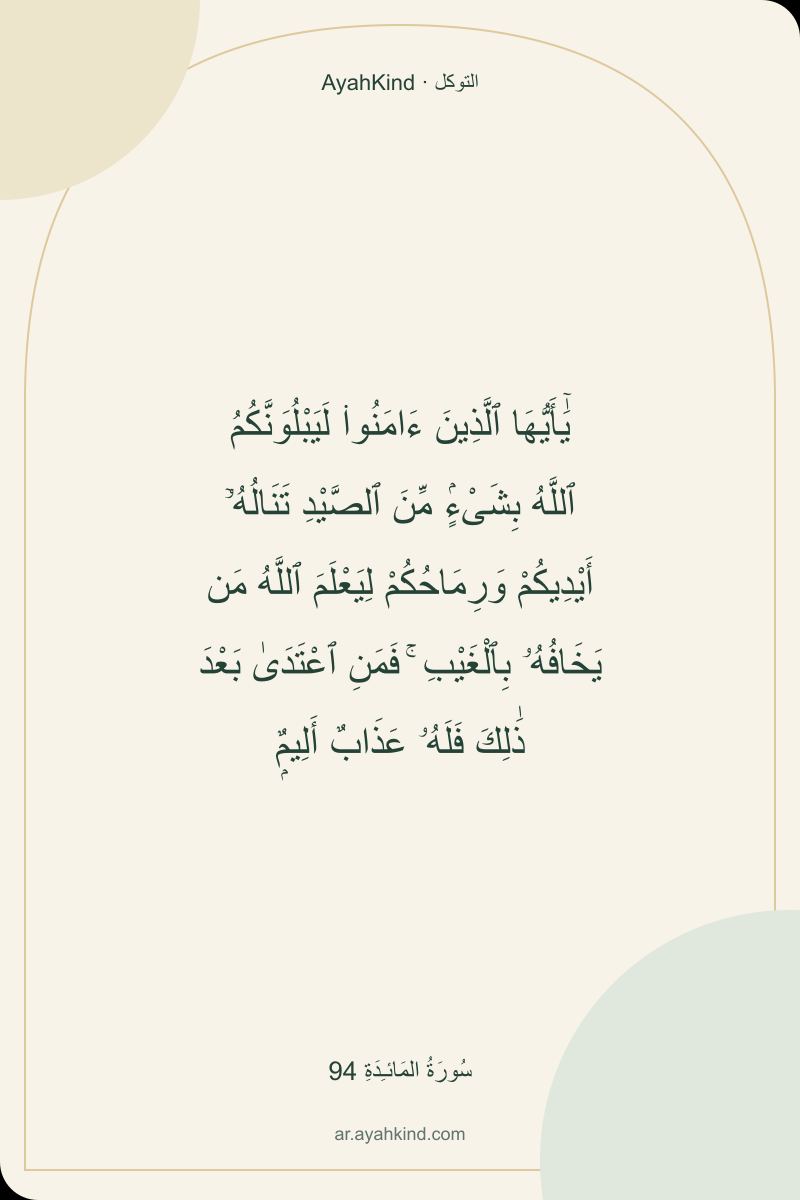 AyahKind · التوكل
يَٰٓأَيُّهَا ٱلَّذِينَ ءَامَنُوا۟ لَيَبْلُوَنَّكُمُ
ٱللَّهُ بِشَىْءٍۢ مِّنَ ٱلصَّيْدِ تَنَالُهُۥٓ
أَيْدِيكُمْ وَرِمَاحُكُمْ لِيَعْلَمَ ٱللَّهُ مَن
يَخَافُهُۥ بِٱلْغَيْبِ ۚ فَمَنِ ٱعْتَدَىٰ بَعْدَ
ذَٰلِكَ فَلَهُۥ عَذَابٌ أَلِيمٌۭ
سُورَةُ المَائـِدَةِ 94
ar.ayahkind.com